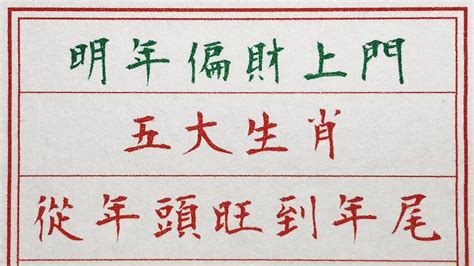 明年偏財上門
五大生肖
從年頭旺到年尾